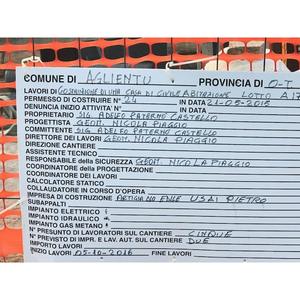 COMUNE DI AGLIENTU PROVINCIA DI O-T
LAVORI DI COSTRUZIONE DI UNA CASA DI CIVILE ABITAZIONE LOTTO A17
PERMESSO DI COSTRUIRE N° 24 IN DATA 21-05-2015
DENUNCIA INIZIO ATTIVITA' N° IN DATA
PROPRIETARIO SIG. ADELFO PATERNO CASTELLO
PROGETTISTA GEOM. NICOLA PIAGGIO
COMMITTENTE SIG. ADELFO PATERNO CASTELLO
DIRETTORE DEI LAVORI GEOM. NICOLA PIAGGIO
DIREZIONE CANTIERE
ASSISTENTE TECNICO
RESPONSABILE della SICUREZZA GEOM. NICOLA PIAGGIO
COORDINATORE della PROGETTAZIONE
COORDINATORE DEI LAVORI
CALCOLATORE STATICO
COLLAUDATORE IN CORSO D'OPERA
IMPRESA DI COSTRUZIONE ARTIGIANO EDILE USAI PIETRO
SUBAPPALTI
IMPIANTO ELETTRICO
IMPIANTO IDRAULICO
IMPIANTO GAS METANO
N° PRESUNTO DI LAVORATORI SUL CANTIERE CINQUE
N° PREVISTO DI IMPR. E LAV. AUT. SUL CANTIERE DUE
IMPORTO LAVORI
INIZIO LAVORI 05-10-2016 FINE LAVORI